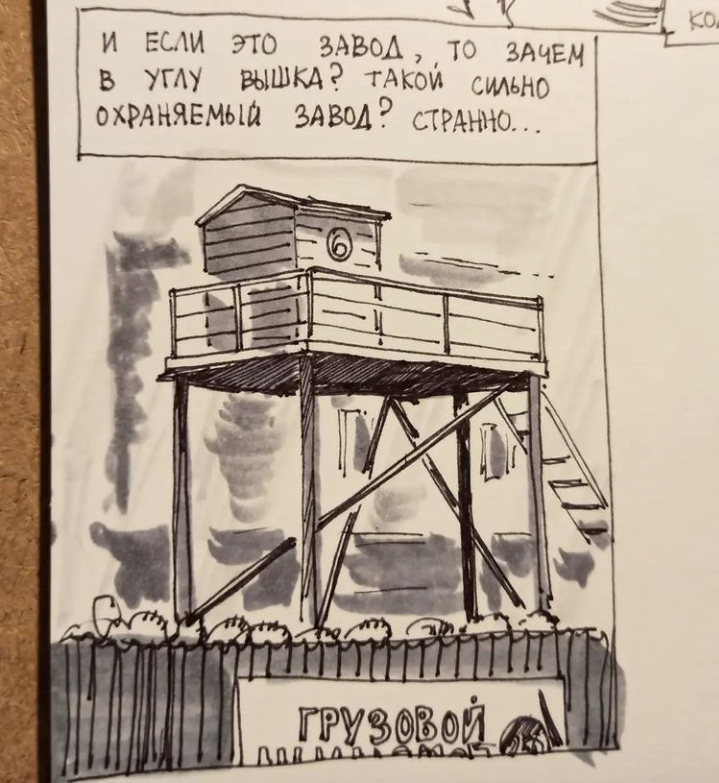 И ЕСЛИ ЭТО ЗАВОД, ТО ЗАЧЕМ
В УГЛУ ВЫШКА? ТАКОЙ СИЛЬНО
ОХРАНЯЕМЫЙ ЗАВОД? СТРАННО...
6
ГРУЗОВОЙ